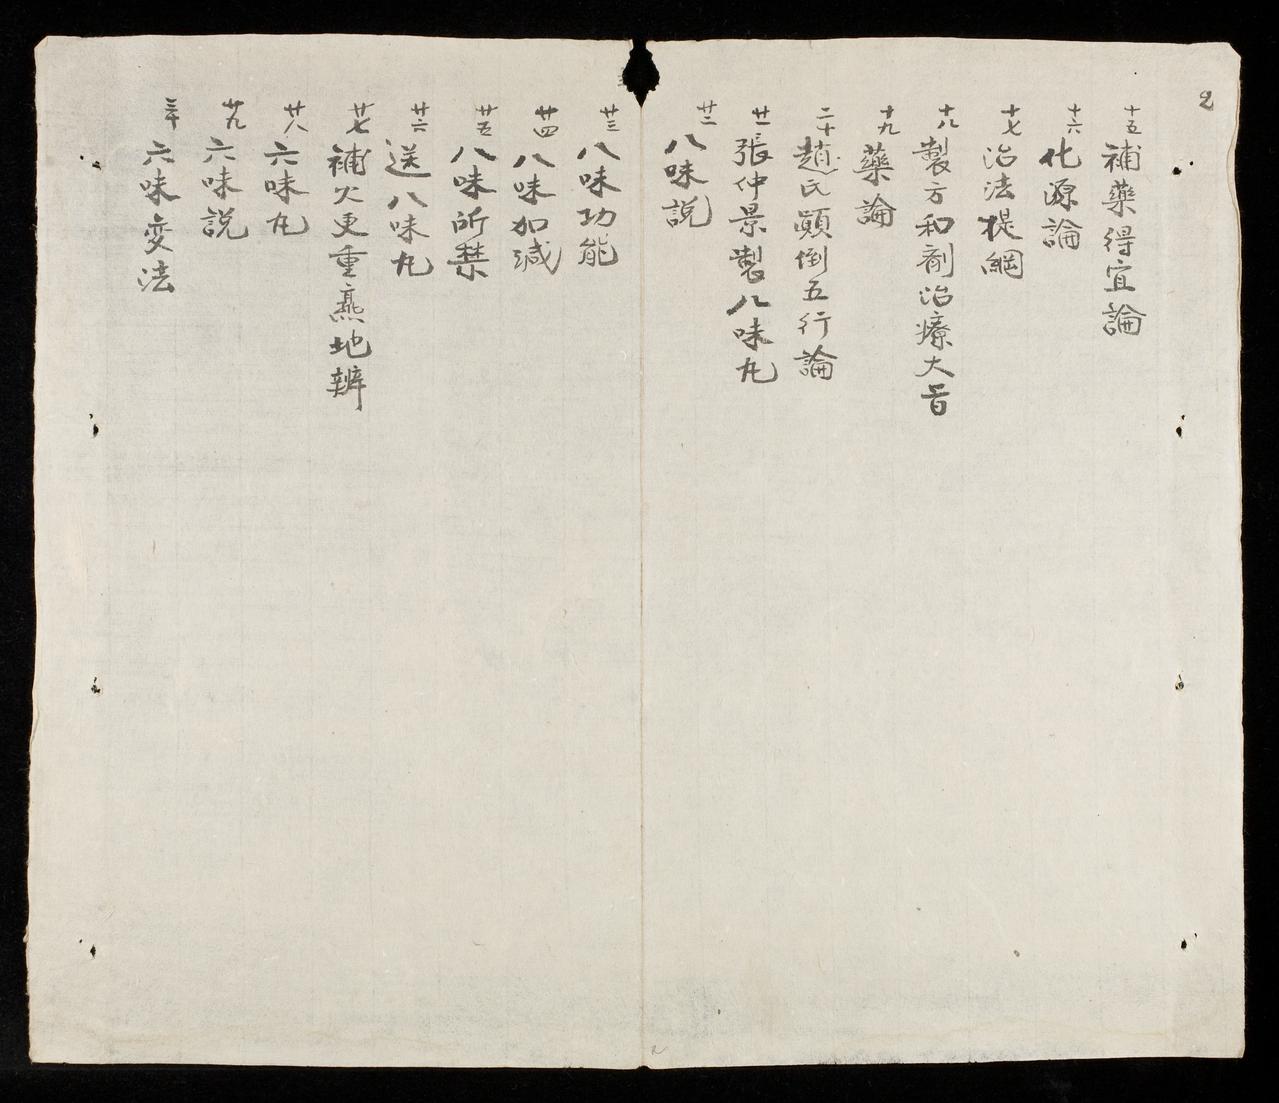 2
十五 補藥得宜論
十六 化源論
十七 治法提綱
十八 製方和劑治療大旨
十九 藥論
二十 趙氏顚倒五行論
廿一 張仲景製八味丸
廿二 八味説
廿三 八味功能
廿四 八味加减
廿五 八味所禁
廿六 送八味丸
廿七 補火更重熹地辨
廿八 六味丸
廿九 六味説
三十 六味変法